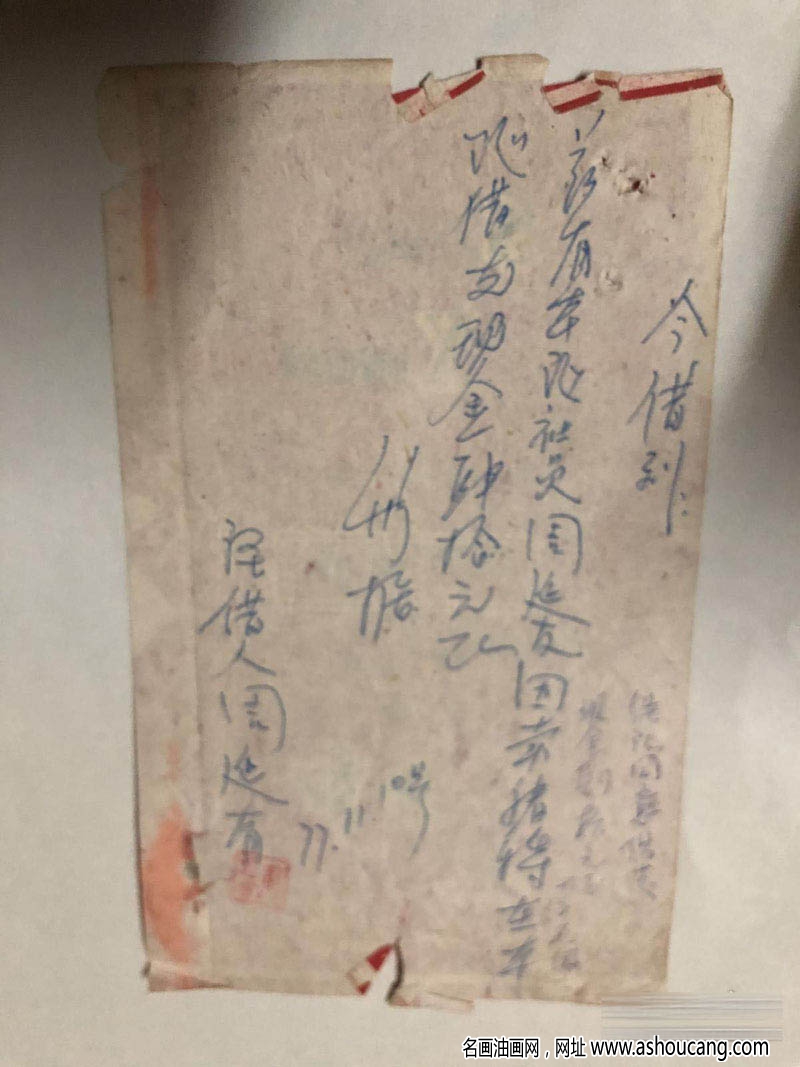 今借到：
兹有本队社员周廷友因卖猪特在本
队借支现金肆拾元正
此据
经借人周廷有
77.11.10号
经队同意借支
现金肆拾元正
名画油画网，网址 www.ashoucang.com